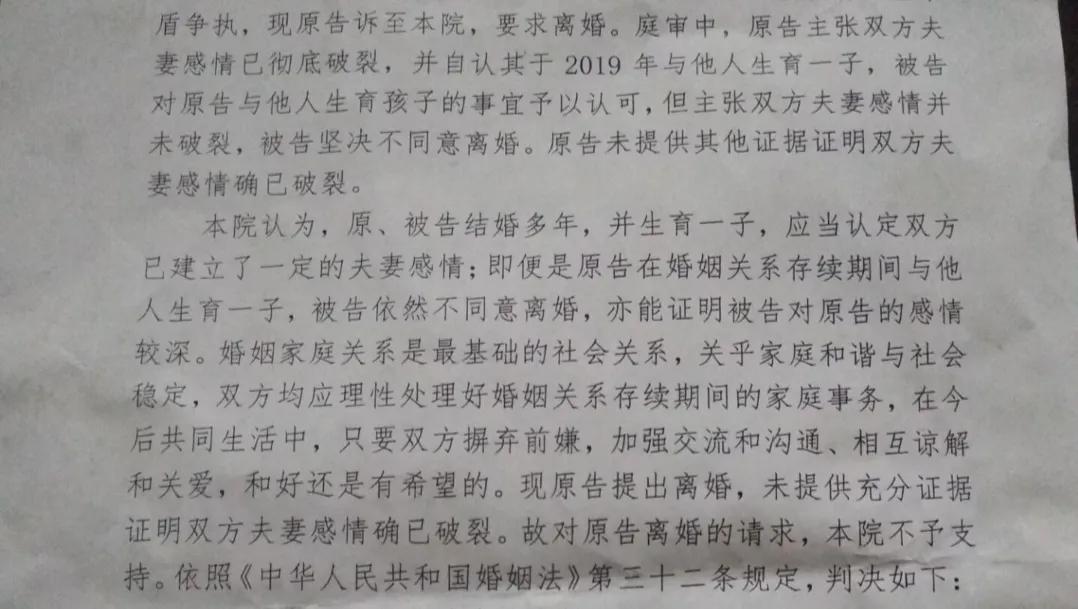 盾争执，现原告诉至本院，要求离婚。庭审中，原告主张双方夫
妻感情已彻底破裂，并自认其于 2019 年与他人生育一子，被告
对原告与他人生育孩子的事宜予以认可，但主张双方夫妻感情并
未破裂，被告坚决不同意离婚。原告未提供其他证据证明双方夫
妻感情确已破裂。
本院认为，原、被告结婚多年，并生育一子，应当认定双方
已建立了一定的夫妻感情；即便是原告在婚姻关系存续期间与他
人生育一子，被告依然不同意离婚，亦能证明被告对原告的感情
较深。婚姻家庭关系是最基础的社会关系，关乎家庭和谐与社会
稳定，双方均应理性处理好婚姻关系存续期间的家庭事务，在今
后共同生活中，只要双方摒弃前嫌，加强交流和沟通、相互谅解
和关爱，和好还是有希望的。现原告提出离婚，未提供充分证据
证明双方夫妻感情确已破裂。故对原告离婚的请求，本院不予支
持。依照《中华人民共和国婚姻法》第三十二条规定，判决如下：